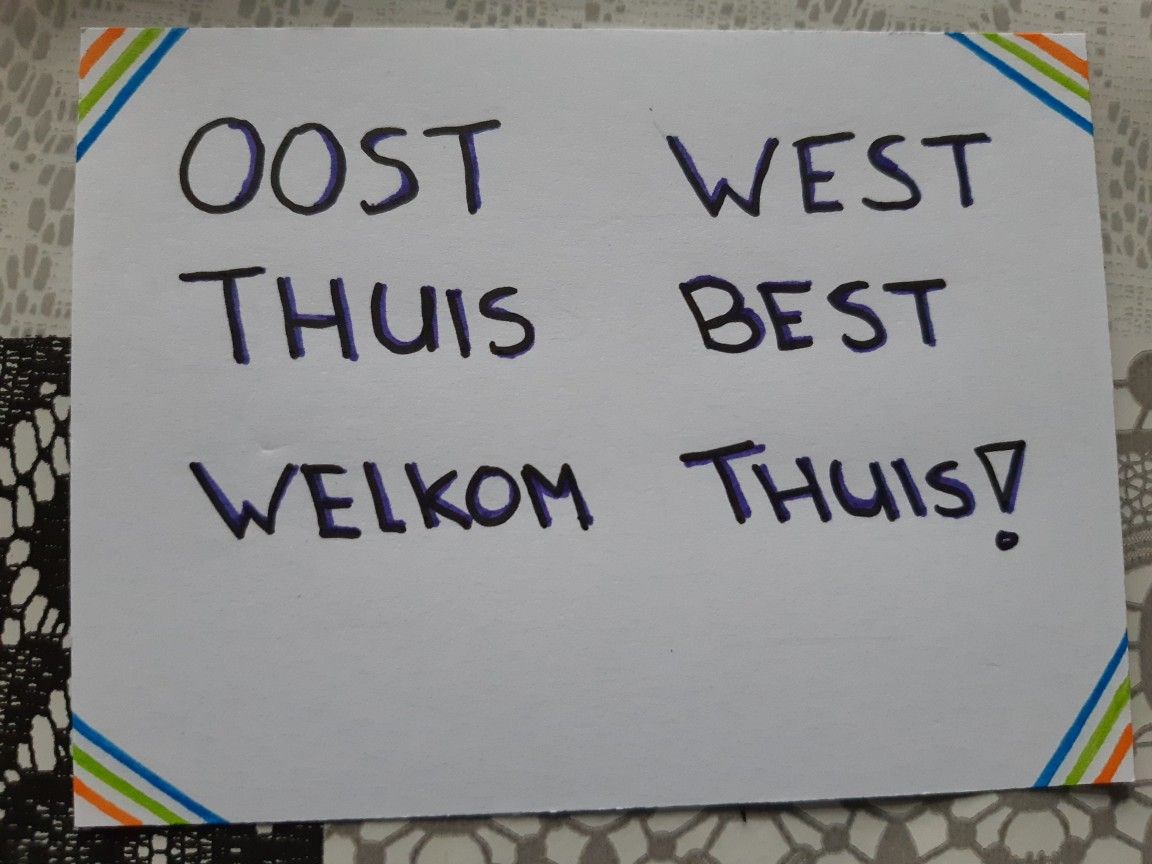 OOST WEST
THUIS BEST
WELKOM THUIS!